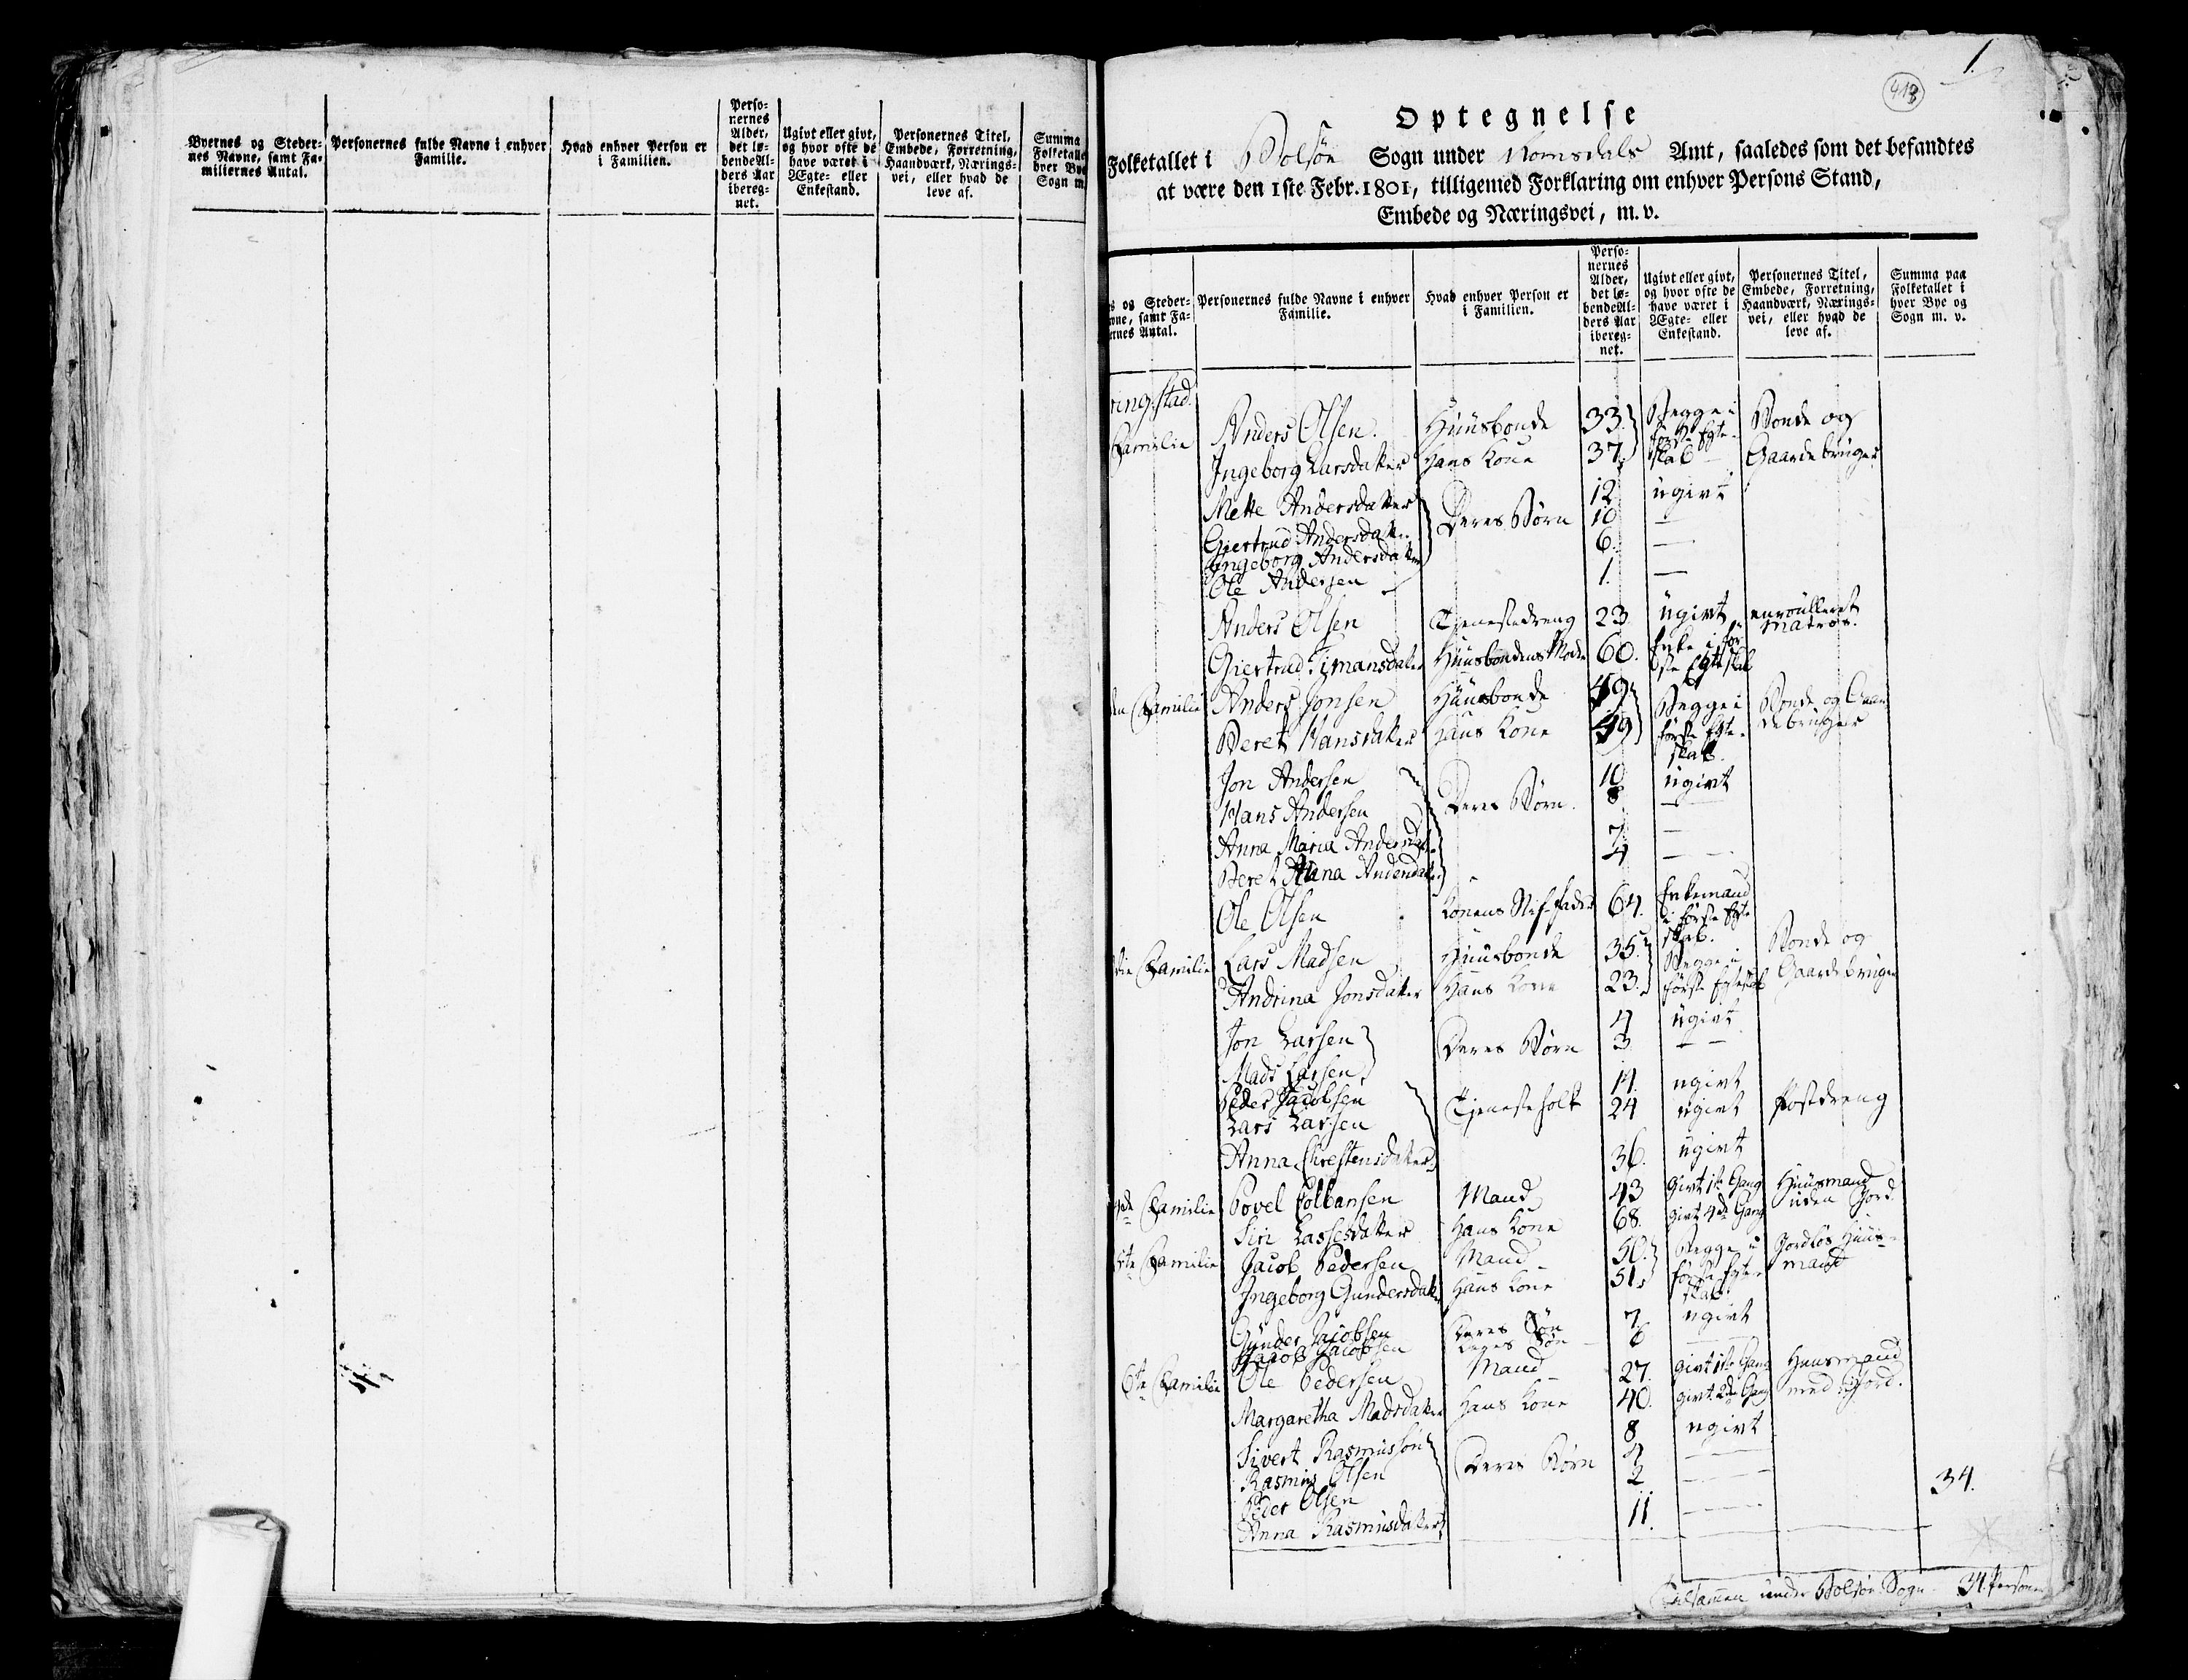 Byernes og Steder-
nes Navne, samt Fa-
miliernes Antal.
Personernes fulde Navne i enhver
Familie.
Hvad enhver Person er
i Familien.
Perso-
nernes
Alder,
det lø-
bende Al-
ders Aar
ibereg-
net.
Ugivt eller givt,
og hvor ofte de
have været i
Ægte- eller
Enkestand.
Personernes Titel,
Embede, Forretning,
Haandværk, Nærings-
vei, eller hvad de
leve af.
Summa
Folketalle
hver Bye
Sogn m.
1.
413
Optegnelse
Folketallet i Bolsøe Sogn under Romsdals Amt, saaledes som det befandtes
at være den 1ste Febr. 1801, tilligemed Forklaring om enhver Persons Stand,
Embede og Næringsvei, m. v.
s og Steder-
vne, samt Fa-
rnes Antal.
Personernes fulde Navne i enhver
Familie.
Hvad enhver Person er
i Familien.
Perso-
nernes
Alder,
det lø-
bende Al-
ders Aar
ibereg-
net.
Ugivt eller givt,
og hvor ofte de
have været i
Ægte- eller
Enkestand.
Personernes Titel,
Embede, Forretning,
Haandværk, Nærings-
vei, eller hvad de
leve af.
Summa paa
Folketallet i
hver Bye og
Sogn m. v.
ring stad
Familie Anders Olsen Huusbonde 33 Begge i første Egte- Bonde og
Ingeborg Larsdatter Hans Kone 37 skab Gaardebruger
Mette Andersdatter Deres Børn 12 ugivt
Giertrud Andersdatter 10 —
Ingeborg Andersdatter 6 —
Ole Andersen 1 —
Anders Olsen Tjenestedreng 23 ugivt enroulleret Matros.
Giertrud Timansdatter Huusbondens Moder 60. Enke i før-ste Egteskab
den Familie Anders Jonsen Huusbonde 49 Begge i Bonde og Gaar
Beret Hansdatter Hans Kone 49 første Egte-skab. debruger
Jon Andersen Deres Børn. 10 ugivt
Hans Andersen 8 —
Anna Maria Andersdat. 7 —
Beret Anna Andersdatter 4 —
Ole Olsen Konens Stif-fader 64. Enkemand i første Egteskab.
die Familie Lars Madsen Huusbonde 35. Begge i Bonde og
Andrina Jonsdatter Hans Kone 23. første Egteskab Gaardebruger
Jon Larsen Deres Børn 4 ugivt
Mads Larsen 3 —
Peder Jacobsen Tjenestefolk 14. ugivt
Lars Larsen 24 ugivt Postdreng
Anna Christensdatter 36. ugivt
4de Familie Povel Colbansen Mand 43 Givt 1ste Gang Huusmand
Siri Lassesdatter Hans Kone 68. Givt 4de Gang uden Jord
5te Familie Jacob Pedersen Mand 50. Begge i Jordløs Huus-
Ingeborg Gundersdatter Hans Kone 51. første Egte-skab mand
Gunder Jacobsen Deres Søn 7 ugivt
Jacob Jacobsen Deres Søn 6 —
6te Familie Ole Pedersen Mand 27. Givt 1ste Gang Huusmand
Margaretha Madsdatter Hans Kone 40. givt 2de Gang med Jord.
Sivert Rasmussøn Deres Børn 8 ugivt
Rasmus Olsen 4 —
Peder Olsen 2 —
Anna Rasmusdatter 11. — 34.
Tilsamen under Bolsøe Sogn 34. Personer